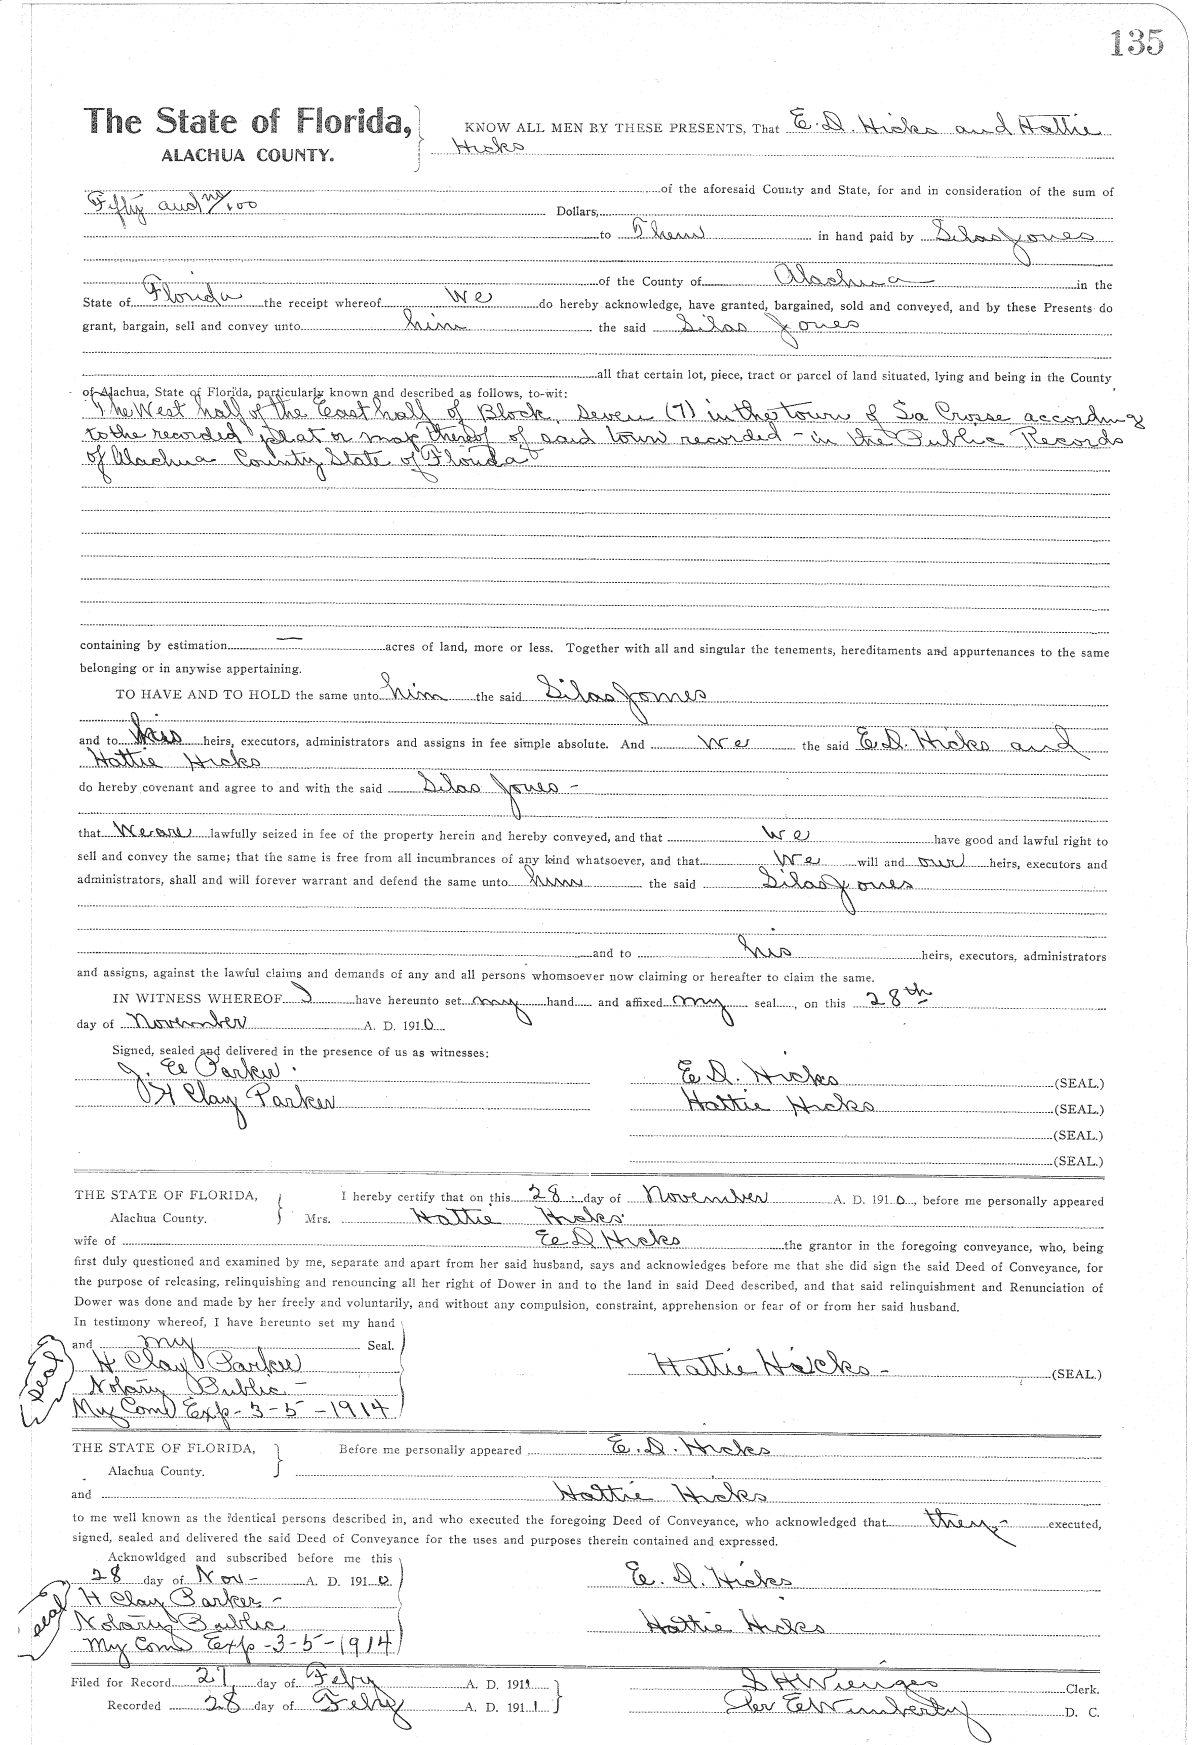 135
The State of Florida, KNOW ALL MEN BY THESE PRESENTS, That E. D. Hicks and Hattie
ALACHUA COUNTY. Hicks
of the aforesaid County and State, for and in consideration of the sum of
Fifty and no/100 Dollars,
to Them in hand paid by Silas Jones
of the County of Alachua in the
State of Florida the receipt whereof We do hereby acknowledge, have granted, bargained, sold and conveyed, and by these Presents do
grant, bargain, sell and convey unto him the said Silas Jones
all that certain lot, piece, tract or parcel of land situated, lying and being in the County
of Alachua, State of Florida, particularly known and described as follows, to-wit:
The West half of the East half of Block seven (7) in the town of La Crosse according
to the recorded plat or map thereof of said town recorded - in the Public Records
of Alachua County State of Florida
containing by estimation — acres of land, more or less. Together with all and singular the tenements, hereditaments and appurtenances to the same
belonging or in anywise appertaining.
TO HAVE AND TO HOLD the same unto him the said Silas Jones
and to his heirs, executors, administrators and assigns in fee simple absolute. And We the said E. D. Hicks and
Hattie Hicks
do hereby covenant and agree to and with the said Silas Jones -
that We are lawfully seized in fee of the property herein and hereby conveyed, and that we have good and lawful right to
sell and convey the same; that the same is free from all incumbrances of any kind whatsoever, and that We will and our heirs, executors and
administrators, shall and will forever warrant and defend the same unto him the said Silas Jones
and to his heirs, executors, administrators
and assigns, against the lawful claims and demands of any and all persons whomsoever now claiming or hereafter to claim the same.
IN WITNESS WHEREOF I have hereunto set my hand and affixed my seal, on this 28th
day of November A. D. 1910
Signed, sealed and delivered in the presence of us as witnesses:
J. E Parker. E D. Hicks (SEAL.)
H Clay Parker Hattie Hicks (SEAL.)
(SEAL.)
(SEAL.)
THE STATE OF FLORIDA, I hereby certify that on this 28. day of November A. D. 1910, before me personally appeared
Alachua County. Mrs. Hattie Hicks.
wife of E D Hicks the grantor in the foregoing conveyance, who, being
first duly questioned and examined by me, separate and apart from her said husband, says and acknowledges before me that she did sign the said Deed of Conveyance, for
the purpose of releasing, relinquishing and renouncing all her right of Dower in and to the land in said Deed described, and that said relinquishment and Renunciation of
Dower was done and made by her freely and voluntarily, and without any compulsion, constraint, apprehension or fear of or from her said husband.
In testimony whereof, I have hereunto set my hand
and my Seal.
seal H Clay Parker Hattie Hicks - (SEAL.)
Notary Public -
My Com Exp - 3 - 5 - 1914
THE STATE OF FLORIDA, Before me personally appeared E. D. Hicks
Alachua County.
and Hattie Hicks
to me well known as the identical persons described in, and who executed the foregoing Deed of Conveyance, who acknowledged that they - executed,
signed, sealed and delivered the said Deed of Conveyance for the uses and purposes therein contained and expressed.
Acknowldged and subscribed before me this
28 day of Nov - A. D. 1910. E. D. Hicks
seal H Clay Parker -
Notary Public Hattie Hicks
My Com Exp - 3 - 5 - 1914
Filed for Record 27, day of Feby A. D. 1911 S H Wienges Clerk.
Recorded 28 day of Feby A. D. 1911 Per E Wimberly D. C.